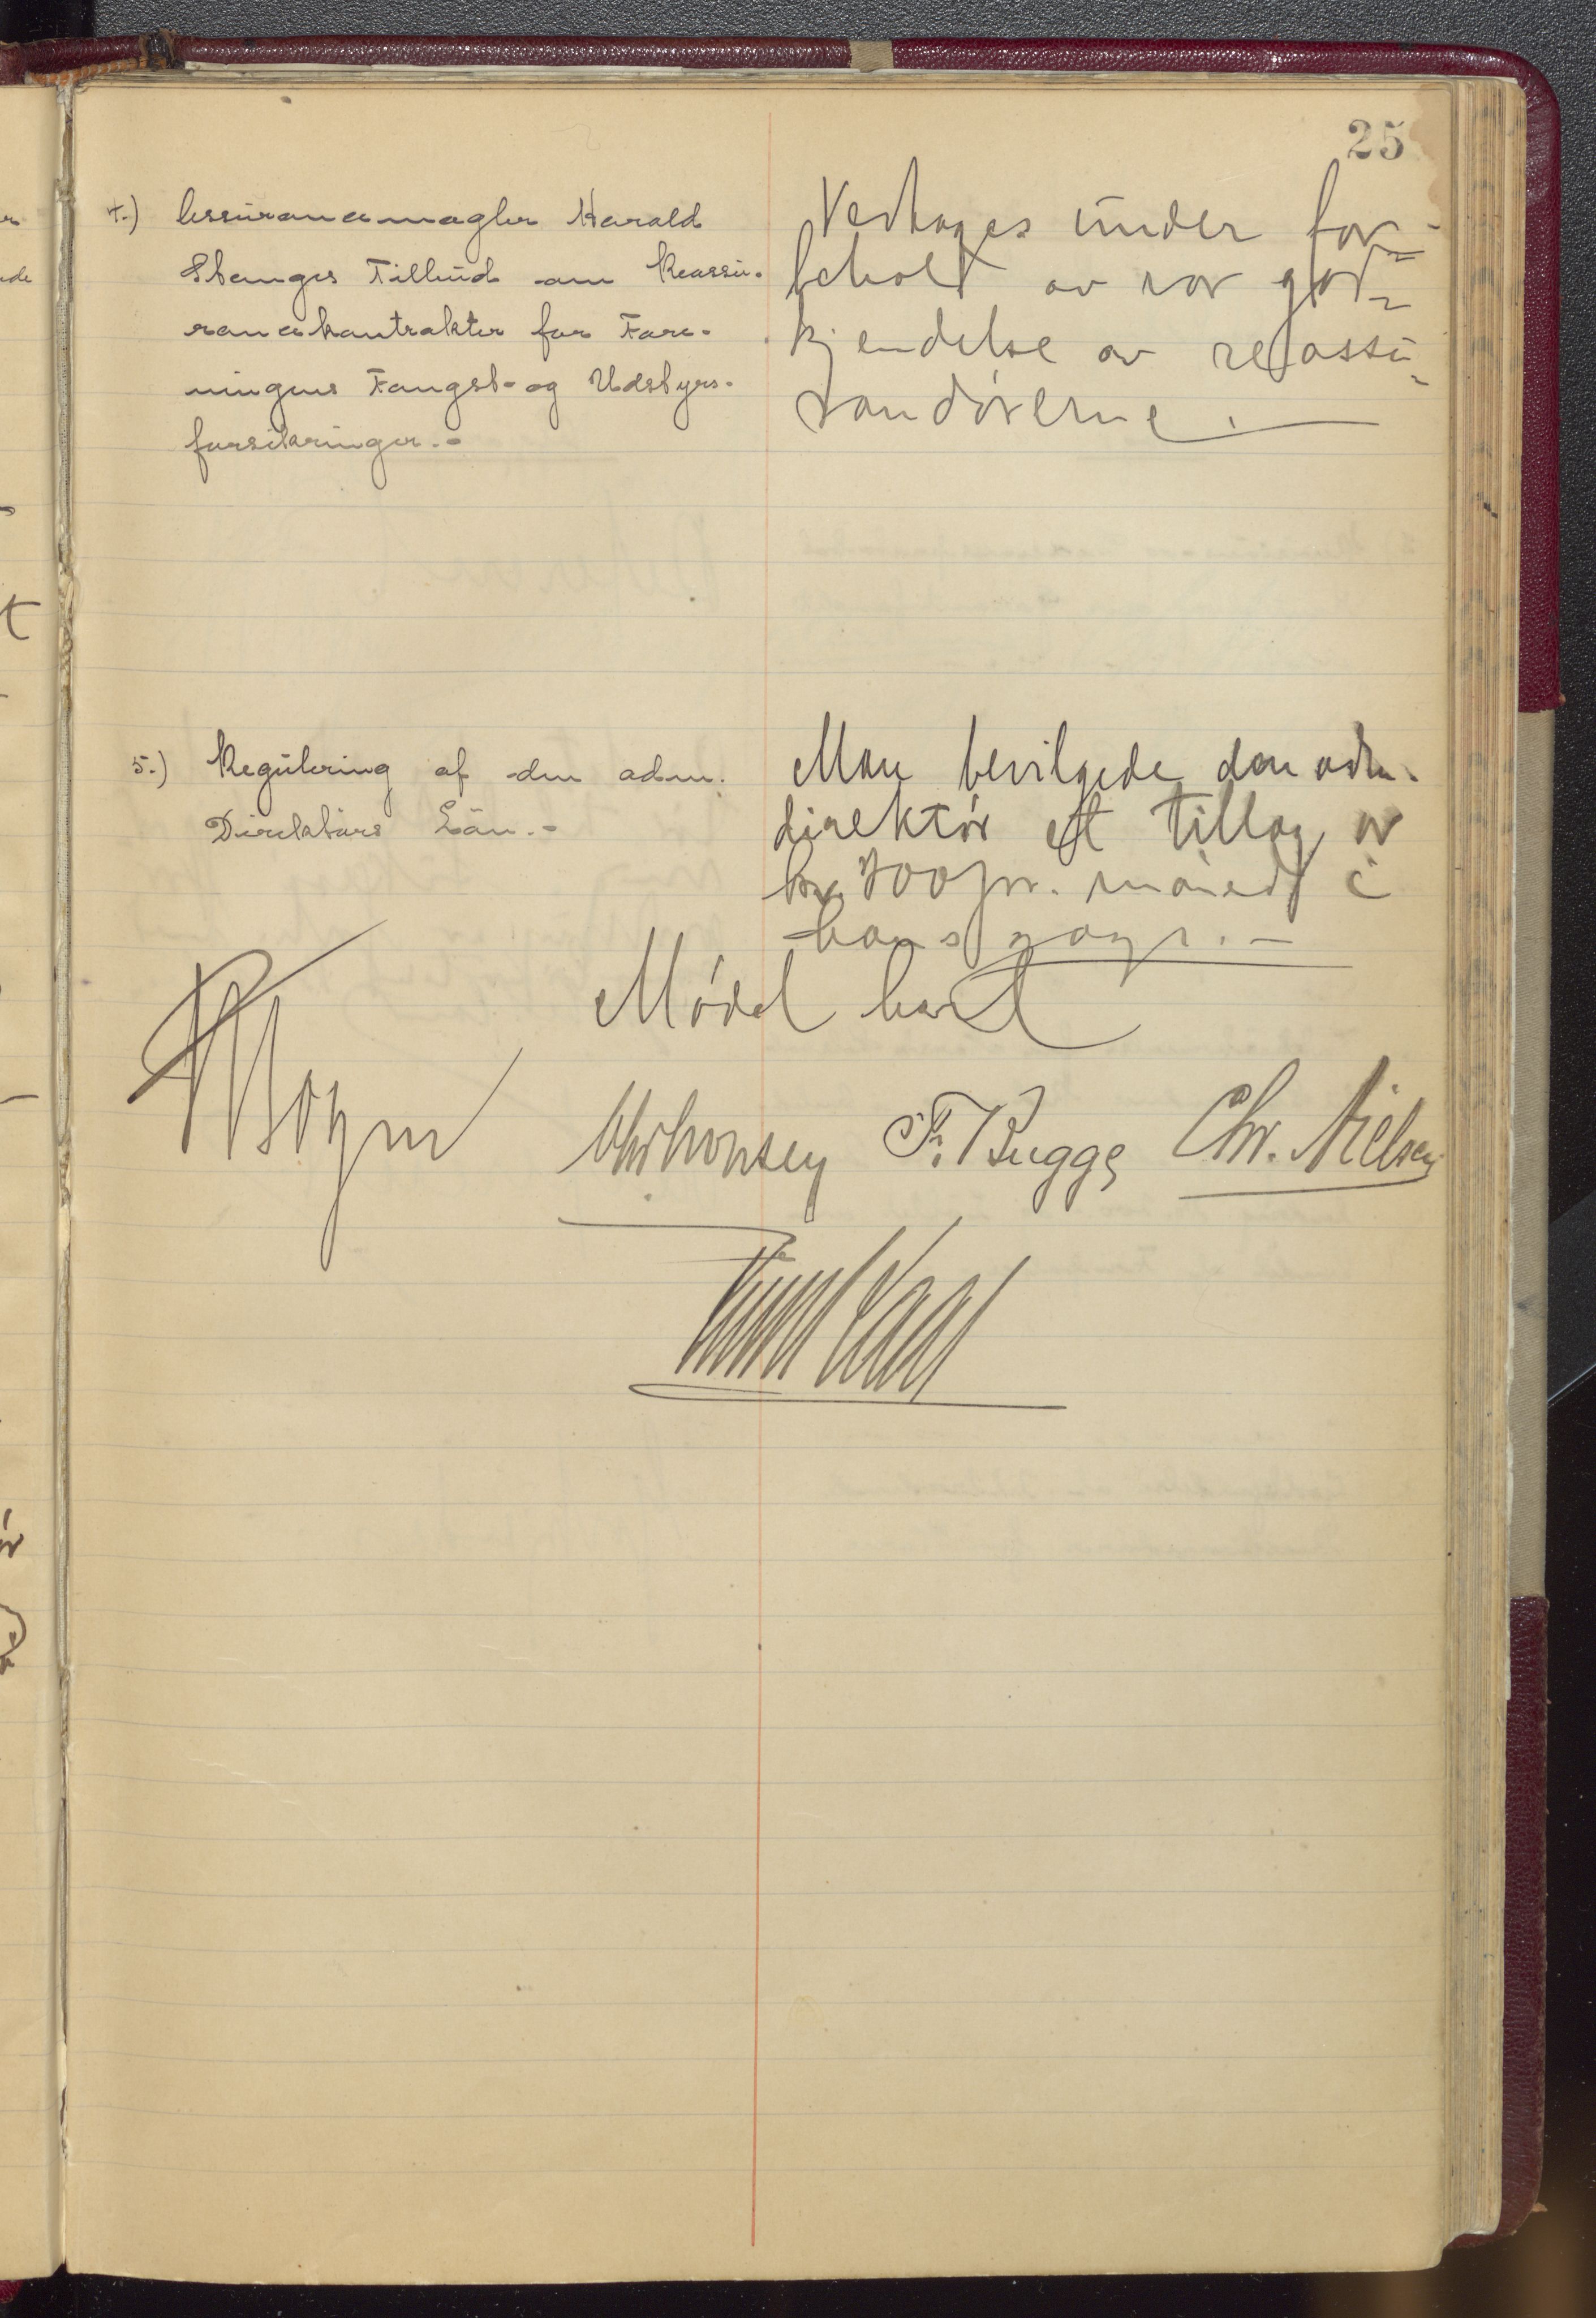 25
4.) Assurancemægler Harald
Stanges Tilbud om Reassu-
rancekontrakter for Fore-
ningens Fangst- og Udstyrs-
forsikringer.-
Vedtages under for-
behold av vor god-
kjendelse av reassu-
randørerne.
5.) Regulering af den adm.
Direktørs Løn.-
Man bevilgede den adm.
direktør et tillæg av
kr. 400 pr. måned i
hans gage.-
Mødet hævet
F. Bugge Chr. Nielsen